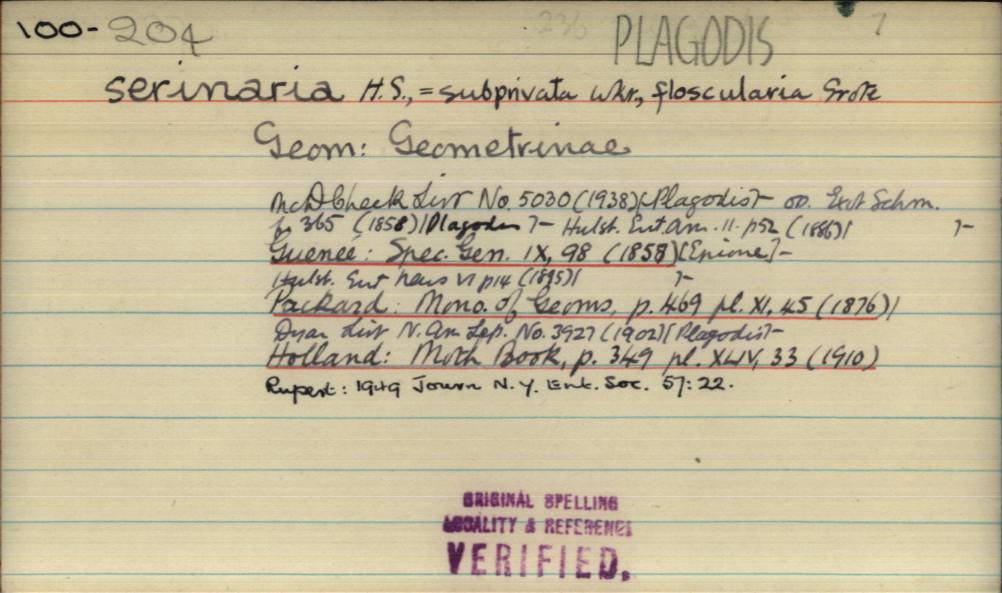 100-204 236 PLAGODIS 7
serinaria H.S., = subprivata Wkr., floscularia Grote
Geom: Geometrinae
McD Check List No. 5030 (1938) (Plagodis)- Schm.
p. 365 (1858) [Plagodis]- Hulst. Ent. Am. II. p52 (1886) [ ]-
Gueneé: Spec. Gen. IX, 98 (1858) [Epione]-
Hulst. Ent news VI p14 (1895) [ ]-
Packard: Mono. of Geoms, p. 469 pl. XI, 45 (1876) /
Dyar List N. Am Lep. No. 3927 (1902) [Plagodis]-
Holland: Moth Book, p. 349 pl. XLIV, 33 (1910)
Rupert: 1949 Journ N.Y. Ent. Soc. 57: 22.
ORIGINAL SPELLING
LOCALITY & REFERENCE
VERIFIED.